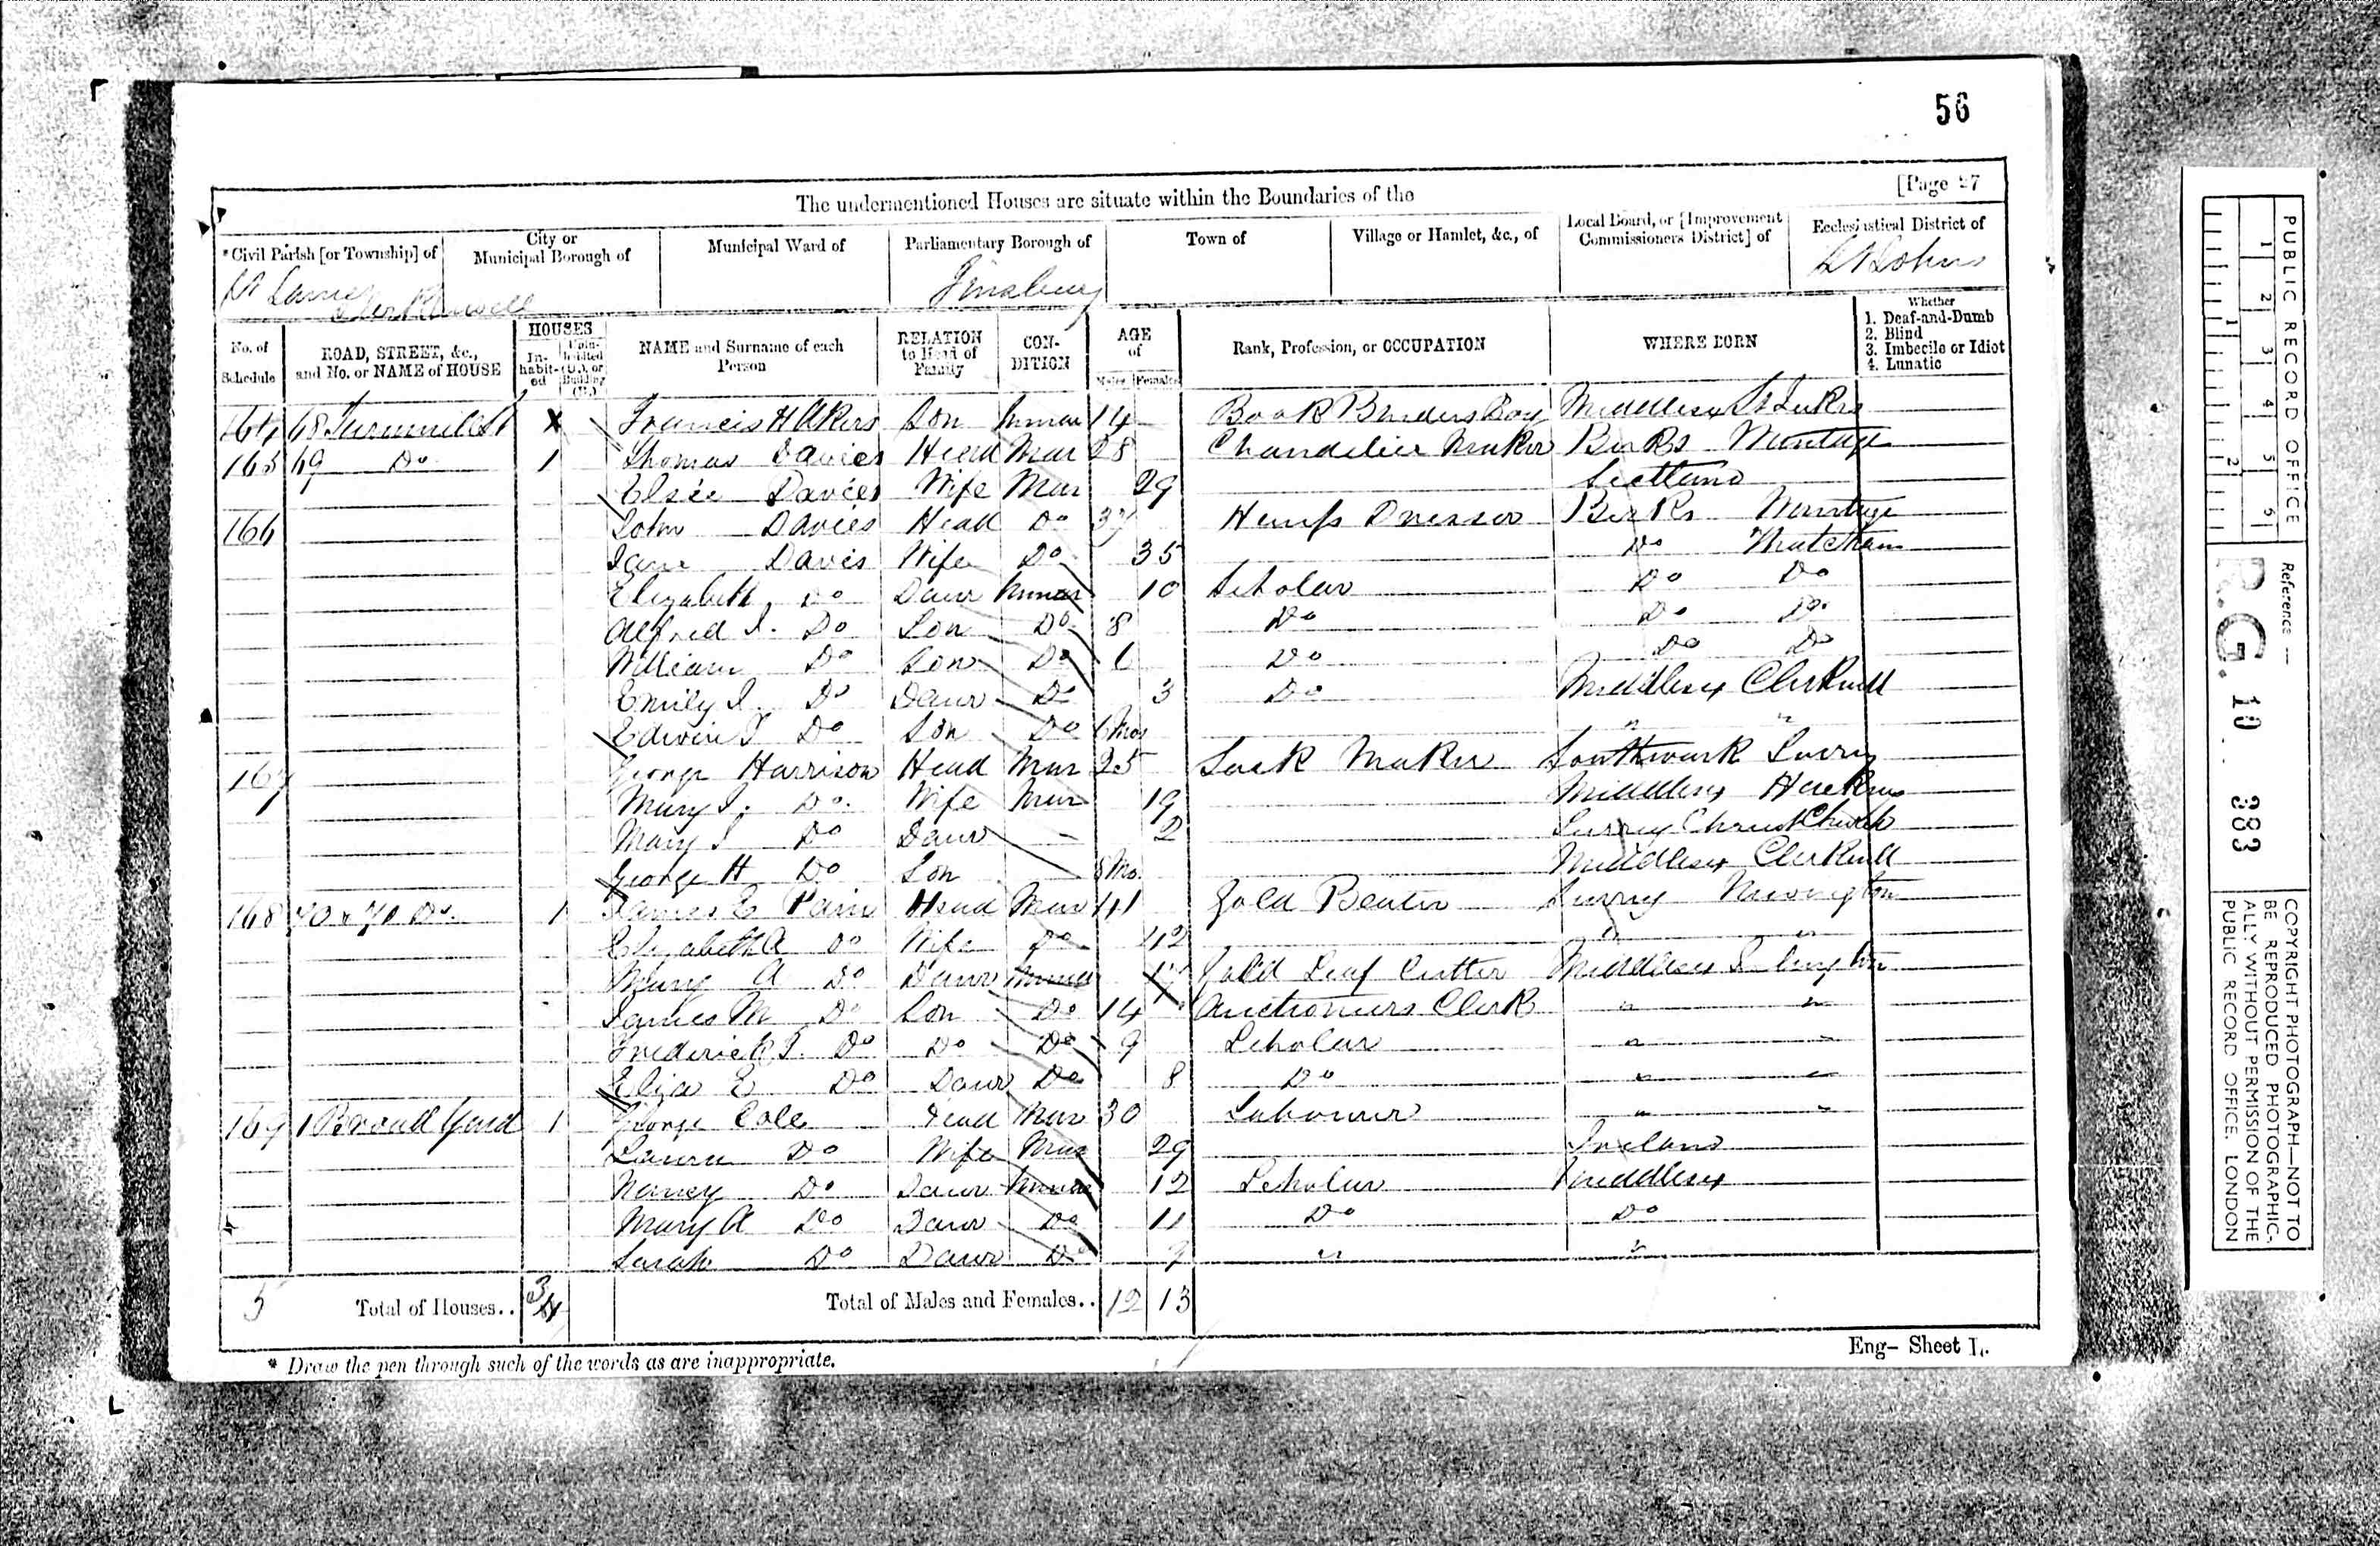 56
[Page 27
The undermentioned Houses are situate within the Boundaries of the
* Civil Parish [or Township] of
City or Municipal Borough of
Municipal Ward of
Parliamentary Borough of
Town of
Village or Hamlet, &c., of
Local Board, or [Improvement Commissioners District] of
Ecclesiastical District of
St James Clerkenwell
Finsbury
St Johns
No. of Schedule
ROAD, STREET, &c., and No. or NAME of HOUSE
HOUSES
Inhabited
Uninhabited (U.), or Building (B.)
NAME and Surname of each Person
RELATION to Head of Family
CONDITION
AGE of
Males
Females
Rank, Profession, or OCCUPATION
WHERE BORN
Whether
1. Deaf-and-Dumb
2. Blind
3. Imbecile or Idiot
4. Lunatic
164 68 Turnmill St X Francis H Akers Son Unmar 14 Book Binders Boy Middlesex St Lukes
165 69 Do 1 Thomas Davies Head Mar 28 Chandelier Maker Berks
Elsie Davies Wife Mar 29 Scotland
166 John Davies Head Do 37 Hemp Dresser Berks
Jane Davis Wife Do 35 Do
Elizabeth Do Daur Unmar 10 Scholar Do Do
Alfred J. Do Son Do 8 Do Do Do
William Do Son Do 6 Do Do Do
Emily J. Do Daur Do 3 Do Middlesex Clerkenwell
Edwin T Do Son Do 6 Mos " "
167 George Harrison Head Mar 25 Sack Maker Southwark Surrey
Mary J. Do Wife Mar 19 Middlesex Hackney
Mary J Do Daur - 2 Surrey Christchurch
George H Do Son 8 Mo. Middlesex Clerkenwell
168 70 & 71 Do. 1 James E Pain Head Mar 41 Gold Beater Surrey Newington
Elizabeth A Do Wife Do 42 " "
Mary A Do Daur Unmar 17 Gold Leaf Cutter Middlesex Islington
James M Do Son Do 14 Auctioneers Clerk " "
Frederick J. Do Do Do 9 Scholar " "
Eliza E Do Daur Do 8 Do " "
169 1 Broad Yard 1 George Cole Head Mar 30 Labourer " "
Laura Do Wife Mar 29 Ireland
Nancy Do Daur Unmar 12 Scholar Middlesex
Mary A Do Daur Do 11 Do Do
Sarah Do Daur Do 9 " "
5 Total of Houses.. 3 4 Total of Males and Females.. 12 13
* Draw the pen through such of the words as are inappropriate.
Eng- Sheet L.
PUBLIC RECORD OFFICE
1 2 3 4 5 6
1 2
Reference:-
R.G. 10 383
COPYRIGHT PHOTOGRAPH—NOT TO
BE REPRODUCED PHOTOGRAPHIC-
ALLY WITHOUT PERMISSION OF THE
PUBLIC RECORD OFFICE, LONDON